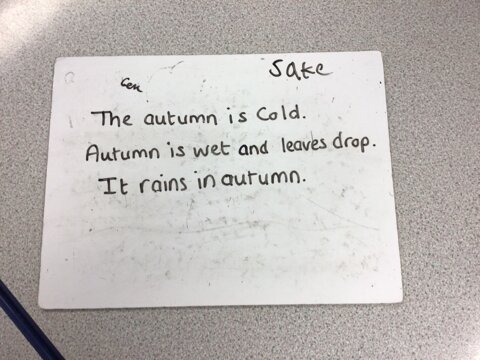 Sake
The autumn is Cold.
Autumn is wet and leaves drop.
It rains in autumn.